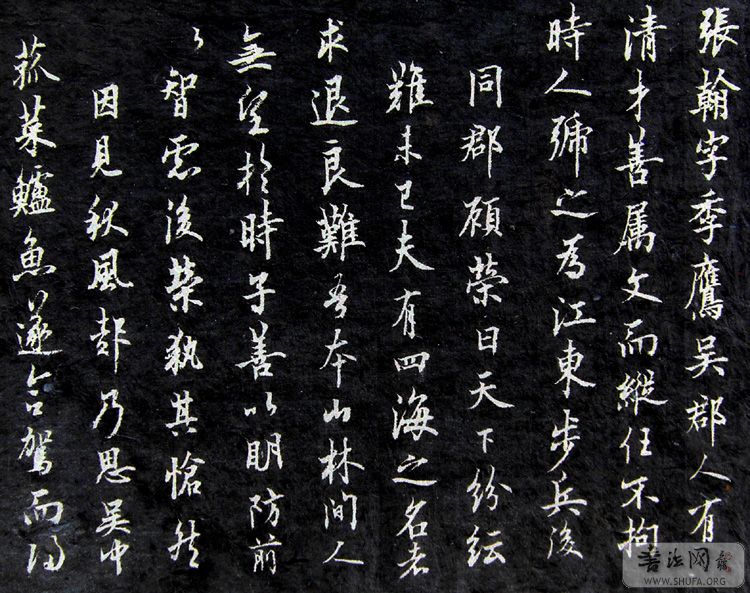 張翰字季鷹吳郡人有
清才善属文而縱任不拘
時人號之為江東步兵後
同郡顧榮曰天下紛紜
難未已夫有四海之名者
求退良難吾本山林間人
無望於時子善以明防前
以智慮後榮執其愴然
因見秋風起乃思吳中
菰菜鱸魚遂命駕而歸
书法网
WWW.SHUFA.ORG